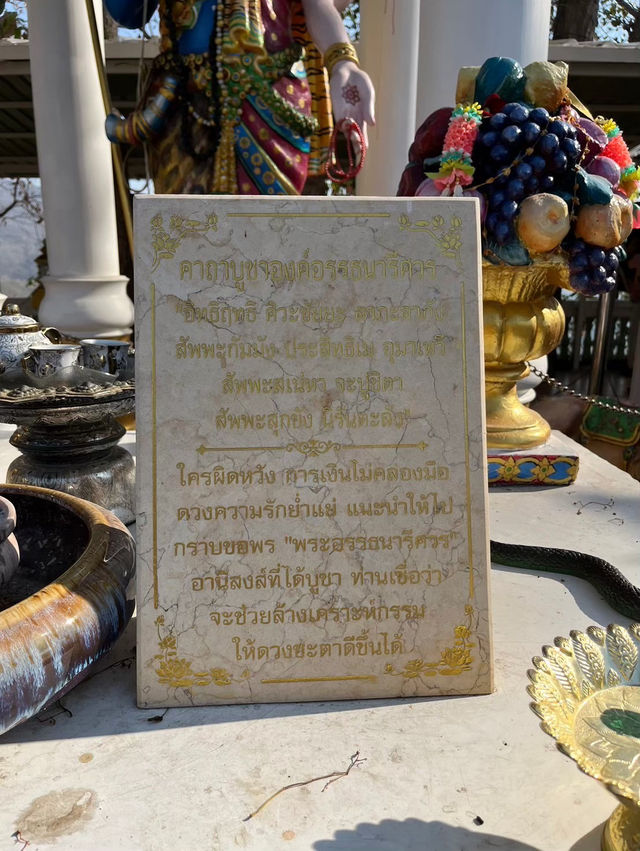 คาถาบูชาองค์อรรธนารีศวร
"อิทธิฤทธิ ศิวะชัยยะ
สัพพะกัมมัง ประสิทธิเม อุมาเทวี
สัพพะสเน่หา จะปูชิตา
สัพพะสุกขัง นิรันตะรัง"
ใครผิดหวัง การเงินไม่คล่องมือ
ดวงความรักย่ำแย่ แนะนำให้ไป
กราบขอพร "พระอรรธนารีศวร"
อานิสงส์ที่ได้บูชา ท่านเชื่อว่า
จะช่วยล้างเคราะห์กรรม
ให้ดวงชะตาดีขึ้นได้